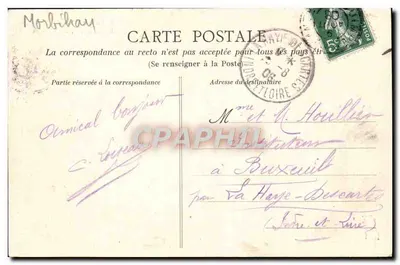 Morbihan
CARTE POSTALE
La correspondance au recto n'est pas acceptée pour tous les pays
(Se renseigner à la Poste)
Partie réservée à la correspondance
Adresse du destinataire
Amical bonjour
CPAPHIL
Mme et M. Houllier
Instituteur
à Buxeuil
par La Haye-Descartes
(Indre et Loire)